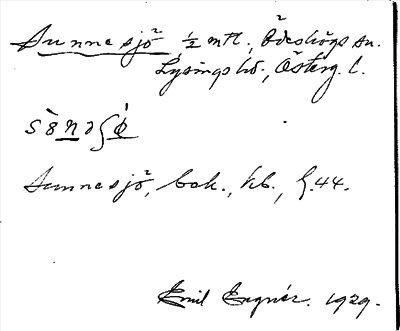 Sunnesjö ½ mtl., Ödeshögs sn.
Lysings hd., Österg. l.
Sunnesjö, bok., kb., f. 44.
Emil 1929.